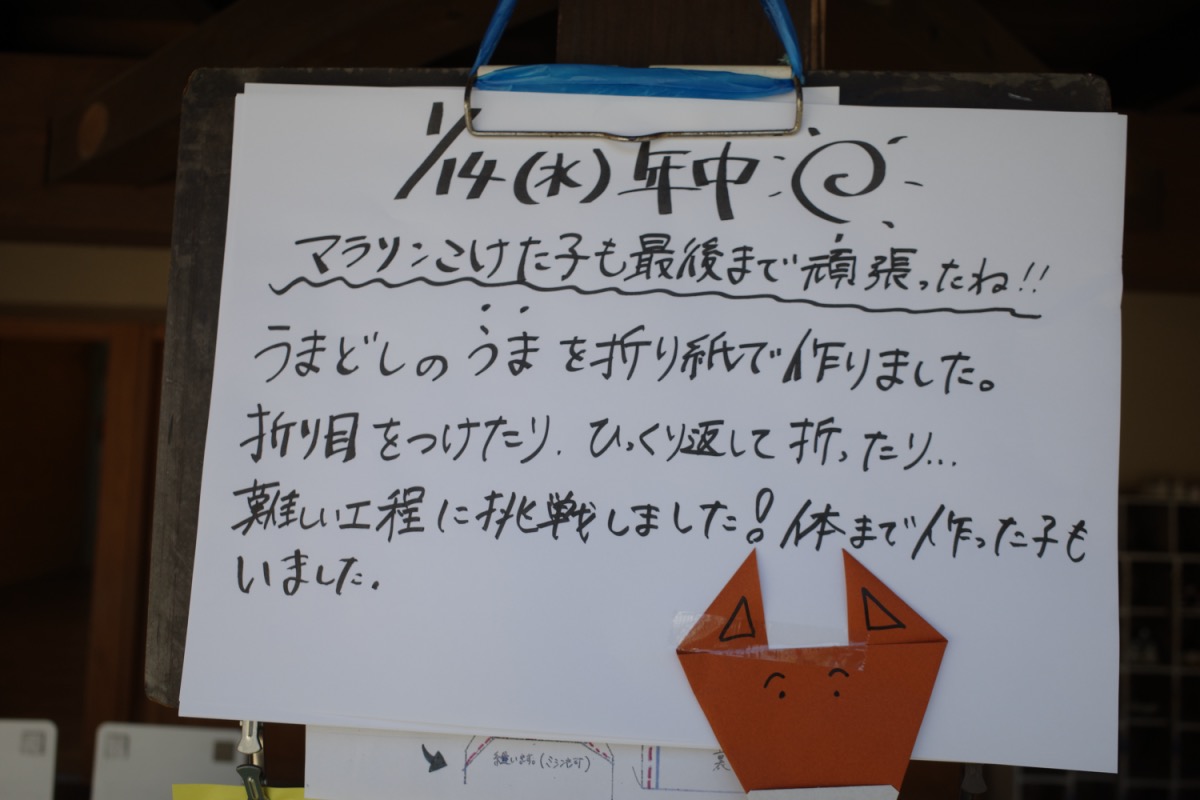 1/14(水)年中
マラソンこけた子も最後まで頑張ったね!!
うまどしのうまを折り紙で作りました。
折り目をつけたり、ひっくり返して折ったり...
難しい工程に挑戦しました!体まで作った子も
いました。
縫います。(ミシン可)
裏